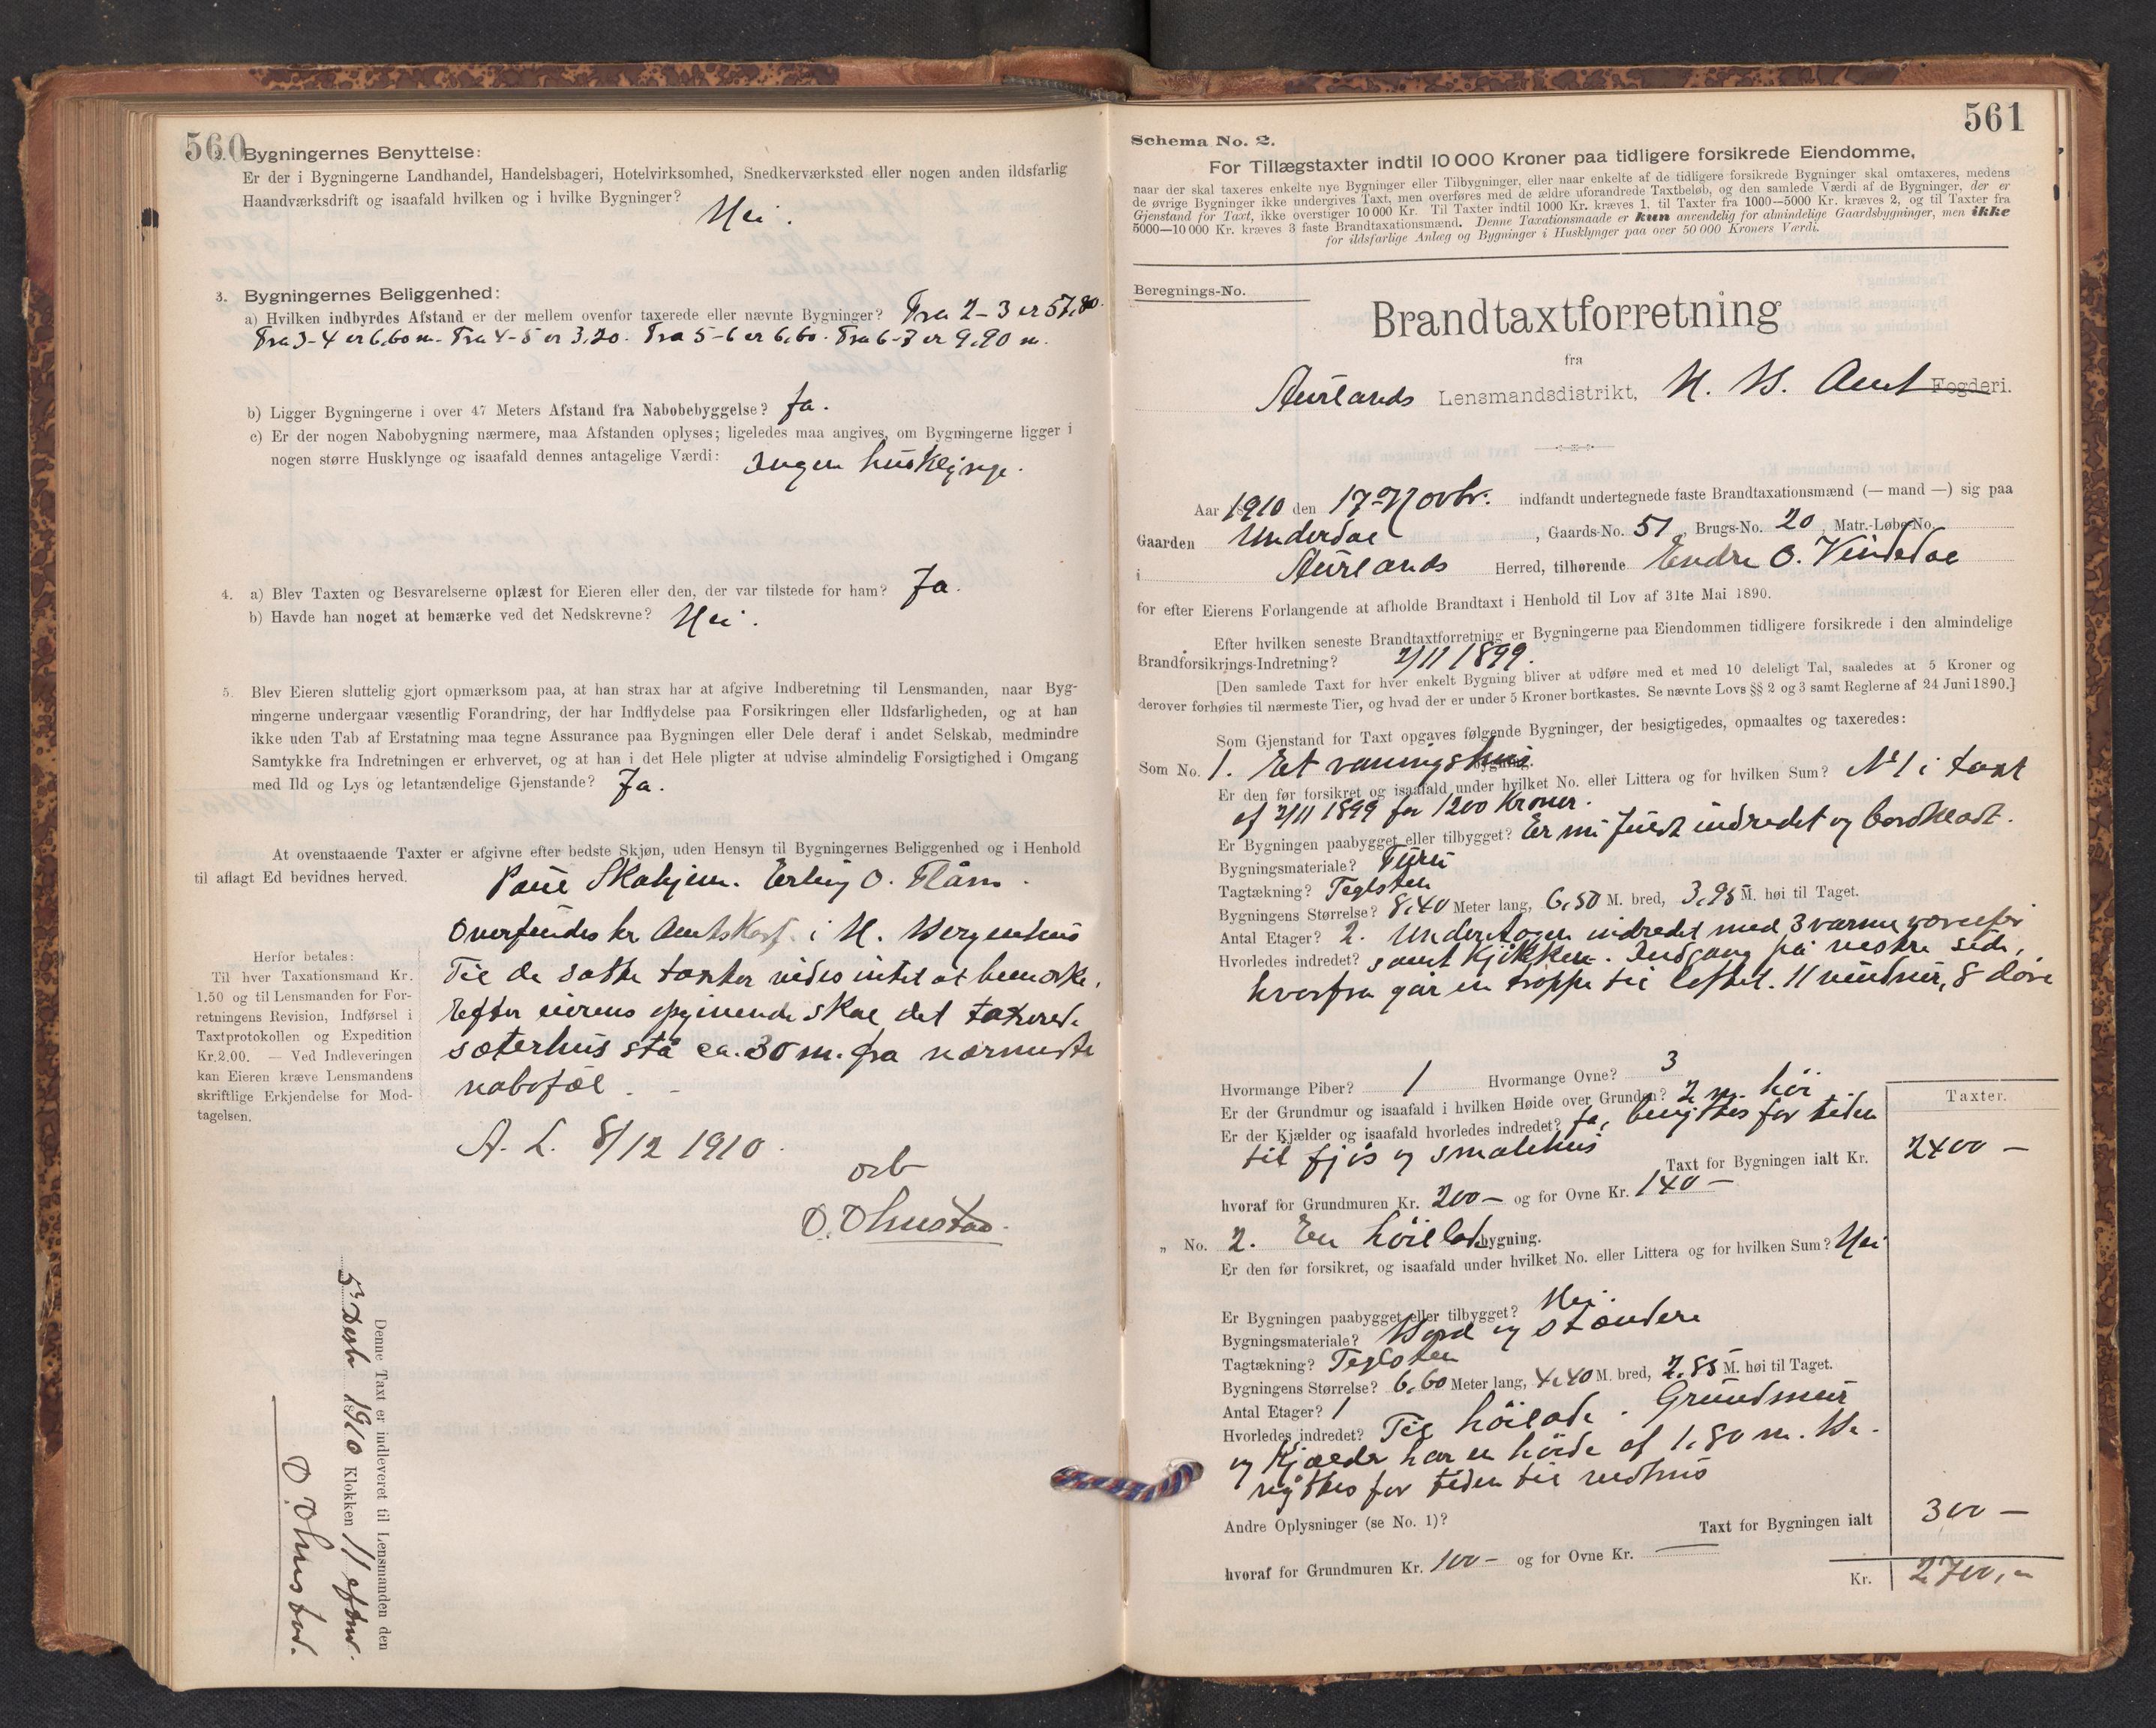 560
2. Bygningernes Benyttelse:
Er der i Bygningerne Landhandel, Handelsbageri, Hotelvirksomhed, Snedkerværksted eller nogen anden ildsfarlig
Haandværksdrift og isaafald hvilken og i hvilke Bygninger?
Nei.
3. Bygningernes Beliggenhed:
a) Hvilken indbyrdes Afstand er der mellem ovenfor taxerede eller nævnte Bygninger? Fra 2-3 er 57,80.
Fra 3-4 er 6,60 m. Fra 4-5 er 3,20. Fra 5-6 er 6,60. Fra 6-7 er 9,90 m.
b) Ligger Bygningerne i over 47 Meters Afstand fra Nabobebyggelse? Ja.
c) Er der nogen Nabobygning nærmere, maa Afstanden oplyses; ligeledes maa angives, om Bygningerne ligger i
nogen større Husklynge og isaafald dennes antagelige Værdi: Ingen husklynge.
4. a) Blev Taxten og Besvarelserne oplæst for Eieren eller den, der var tilstede for ham? Ja.
b) Havde han noget at bemærke ved det Nedskrevne? Nei.
5. Blev Eieren sluttelig gjort opmærksom paa, at han strax har at afgive Indberetning til Lensmanden, naar Byg-
ningerne undergaar væsentlig Forandring, der har Indflydelse paa Forsikringen eller Ildsfarligheden, og at han
ikke uden Tab af Erstatning maa tegne Assurance paa Bygningen eller Dele deraf i andet Selskab, medmindre
Samtykke fra Indretningen er erhvervet, og at han i det Hele pligter at udvise almindelig Forsigtighed i Omgang
med Ild og Lys og letantændelige Gjenstande? Ja.
At ovenstaaende Taxter er afgivne efter bedste Skjøn, uden Hensyn til Bygningernes Beliggenhed og i Henhold
til aflagt Ed bevidnes herved.
Erling O. Flåm.
Herfor betales:
Til hver Taxationsmand Kr.
1.50 og til Lensmanden for For-
retningens Revision, Indførsel i
Taxtprotokollen og Expedition
Kr.2.00. — Ved Indleveringen
kan Eieren kræve Lensmandens
skriftlige Erkjendelse for Mod-
tagelsen.
Oversendes hr Amtskasf. i N. Bergenhus
Til de satte taxter vides intet at bemærke.
Efter eierens opgivende skal det taxerede
sæterhus stå ca. 30 m. fra nærmeste
nabofæl.
A. L. 8/12 1910.
O. Ohnstad.
Denne Taxt er indleveret til Lensmanden den
5 Desbr 1910 Klokken 11 efterm.
O. Ohnstad.
561
Schema No. 2.
For Tillægstaxter indtil 10 000 Kroner paa tidligere forsikrede Eiendomme,
naar der skal taxeres enkelte nye Bygninger eller Tilbygninger, eller naar enkelte af de tidligere forsikrede Bygninger skal omtaxeres, medens
de øvrige Bygninger ikke undergives Taxt, men overføres med de ældre uforandrede Taxtbeløb, og den samlede Værdi af de Bygninger, der er
Gjenstand for Taxt, ikke overstiger 10 000 Kr. Til Taxter indtil 1000 Kr. kræves 1, til Taxter fra 1000—5000 Kr. kræves 2, og til Taxter fra
5000—10 000 Kr. kræves 3 faste Brandtaxationsmænd. Denne Taxationsmaade er kun anvendelig for almindelige Gaardsbygninger, men ikke
for ildsfarlige Anlæg og Bygninger i Husklynger paa over 50 000 Kroners Værdi.
Beregnings-No.
Brandtaxtforretning
fra
Aurlands Lensmandsdistrikt, N. B. Amt Fogderi.
Aar 1910 den 17 Novbr. indfandt undertegnede faste Brandtaxationsmænd (— mand —) sig paa
Gaarden Underdal, Gaards-No. 51, Brugs-No. 20, Matr.-Løbe-No.
i Aurlands Herred, tilhørende Endre O.
for efter Eierens Forlangende at afholde Brandtaxt i Henhold til Lov af 31te Mai 1890.
Efter hvilken seneste Brandtaxtforretning er Bygningerne paa Eiendommen tidligere forsikrede i den almindelige
Brandforsikrings-Indretning? 2/11 1899.
[Den samlede Taxt for hver enkelt Bygning bliver at udføre med et med 10 deleligt Tal, saaledes at 5 Kroner og
derover forhøies til nærmeste Tier, og hvad der er under 5 Kroner bortkastes. Se nævnte Lovs §§ 2 og 3 samt Reglerne af 24 Juni 1890.]
Som Gjenstand for Taxt opgaves følgende Bygninger, der besigtigedes, opmaaltes og taxeredes:
Som No. 1. Et våningshus bygning.
Er den før forsikret og isaafald under hvilket No. eller Littera og for hvilken Sum? No 1 i taxt
af 2/11 1899 for 1200 Kroner.
Er Bygningen paabygget eller tilbygget? Er nu fuldt indredet og bordklædt.
Bygningsmateriale? Furu
Tagtækning? Teglsten
Bygningens Størrelse? 8,40 Meter lang, 6,50 M. bred, 3,95 M. høi til Taget.
Antal Etager? 2. Underetagen indredet med 3 varme værelser
Hvorledes indredet? samt kjøkken. Indgang på vestre side,
hvorfra går en trappe til loftet. 11 vinduer, 8 døre
Hvormange Piber? 1 Hvormange Ovne? 3
Er der Grundmur og isaafald i hvilken Høide over Grunden? 2 m. høi
Er der Kjælder og isaafald hvorledes indredet? Ja, benyttes for tiden
til fjøs og smalehus
Taxter.
Taxt for Bygningen ialt Kr. 2400 —
hvoraf for Grundmuren Kr. 200 — og for Ovne Kr. 140 —
„ No. 2. En høilade bygning.
Er den før forsikret, og isaafald under hvilket No. eller Littera og for hvilken Sum? Nei
Er Bygningen paabygget eller tilbygget? Nei.
Bygningsmateriale? Bord og stændere
Tagtækning? Teglsten
Bygningens Størrelse? 6,60 Meter lang, 4,40 M. bred, 2,85 M. høi til Taget.
Antal Etager? 1
Hvorledes indredet? Til høilade. Grundmur
og Kjælder har en høide af 1,80 m. Be-
nyttes for tiden til vedhus
Andre Oplysninger (se No. 1)?
Taxt for Bygningen ialt 300 —
hvoraf for Grundmuren Kr. 100 — og for Ovne Kr. —
Kr. 2700,-